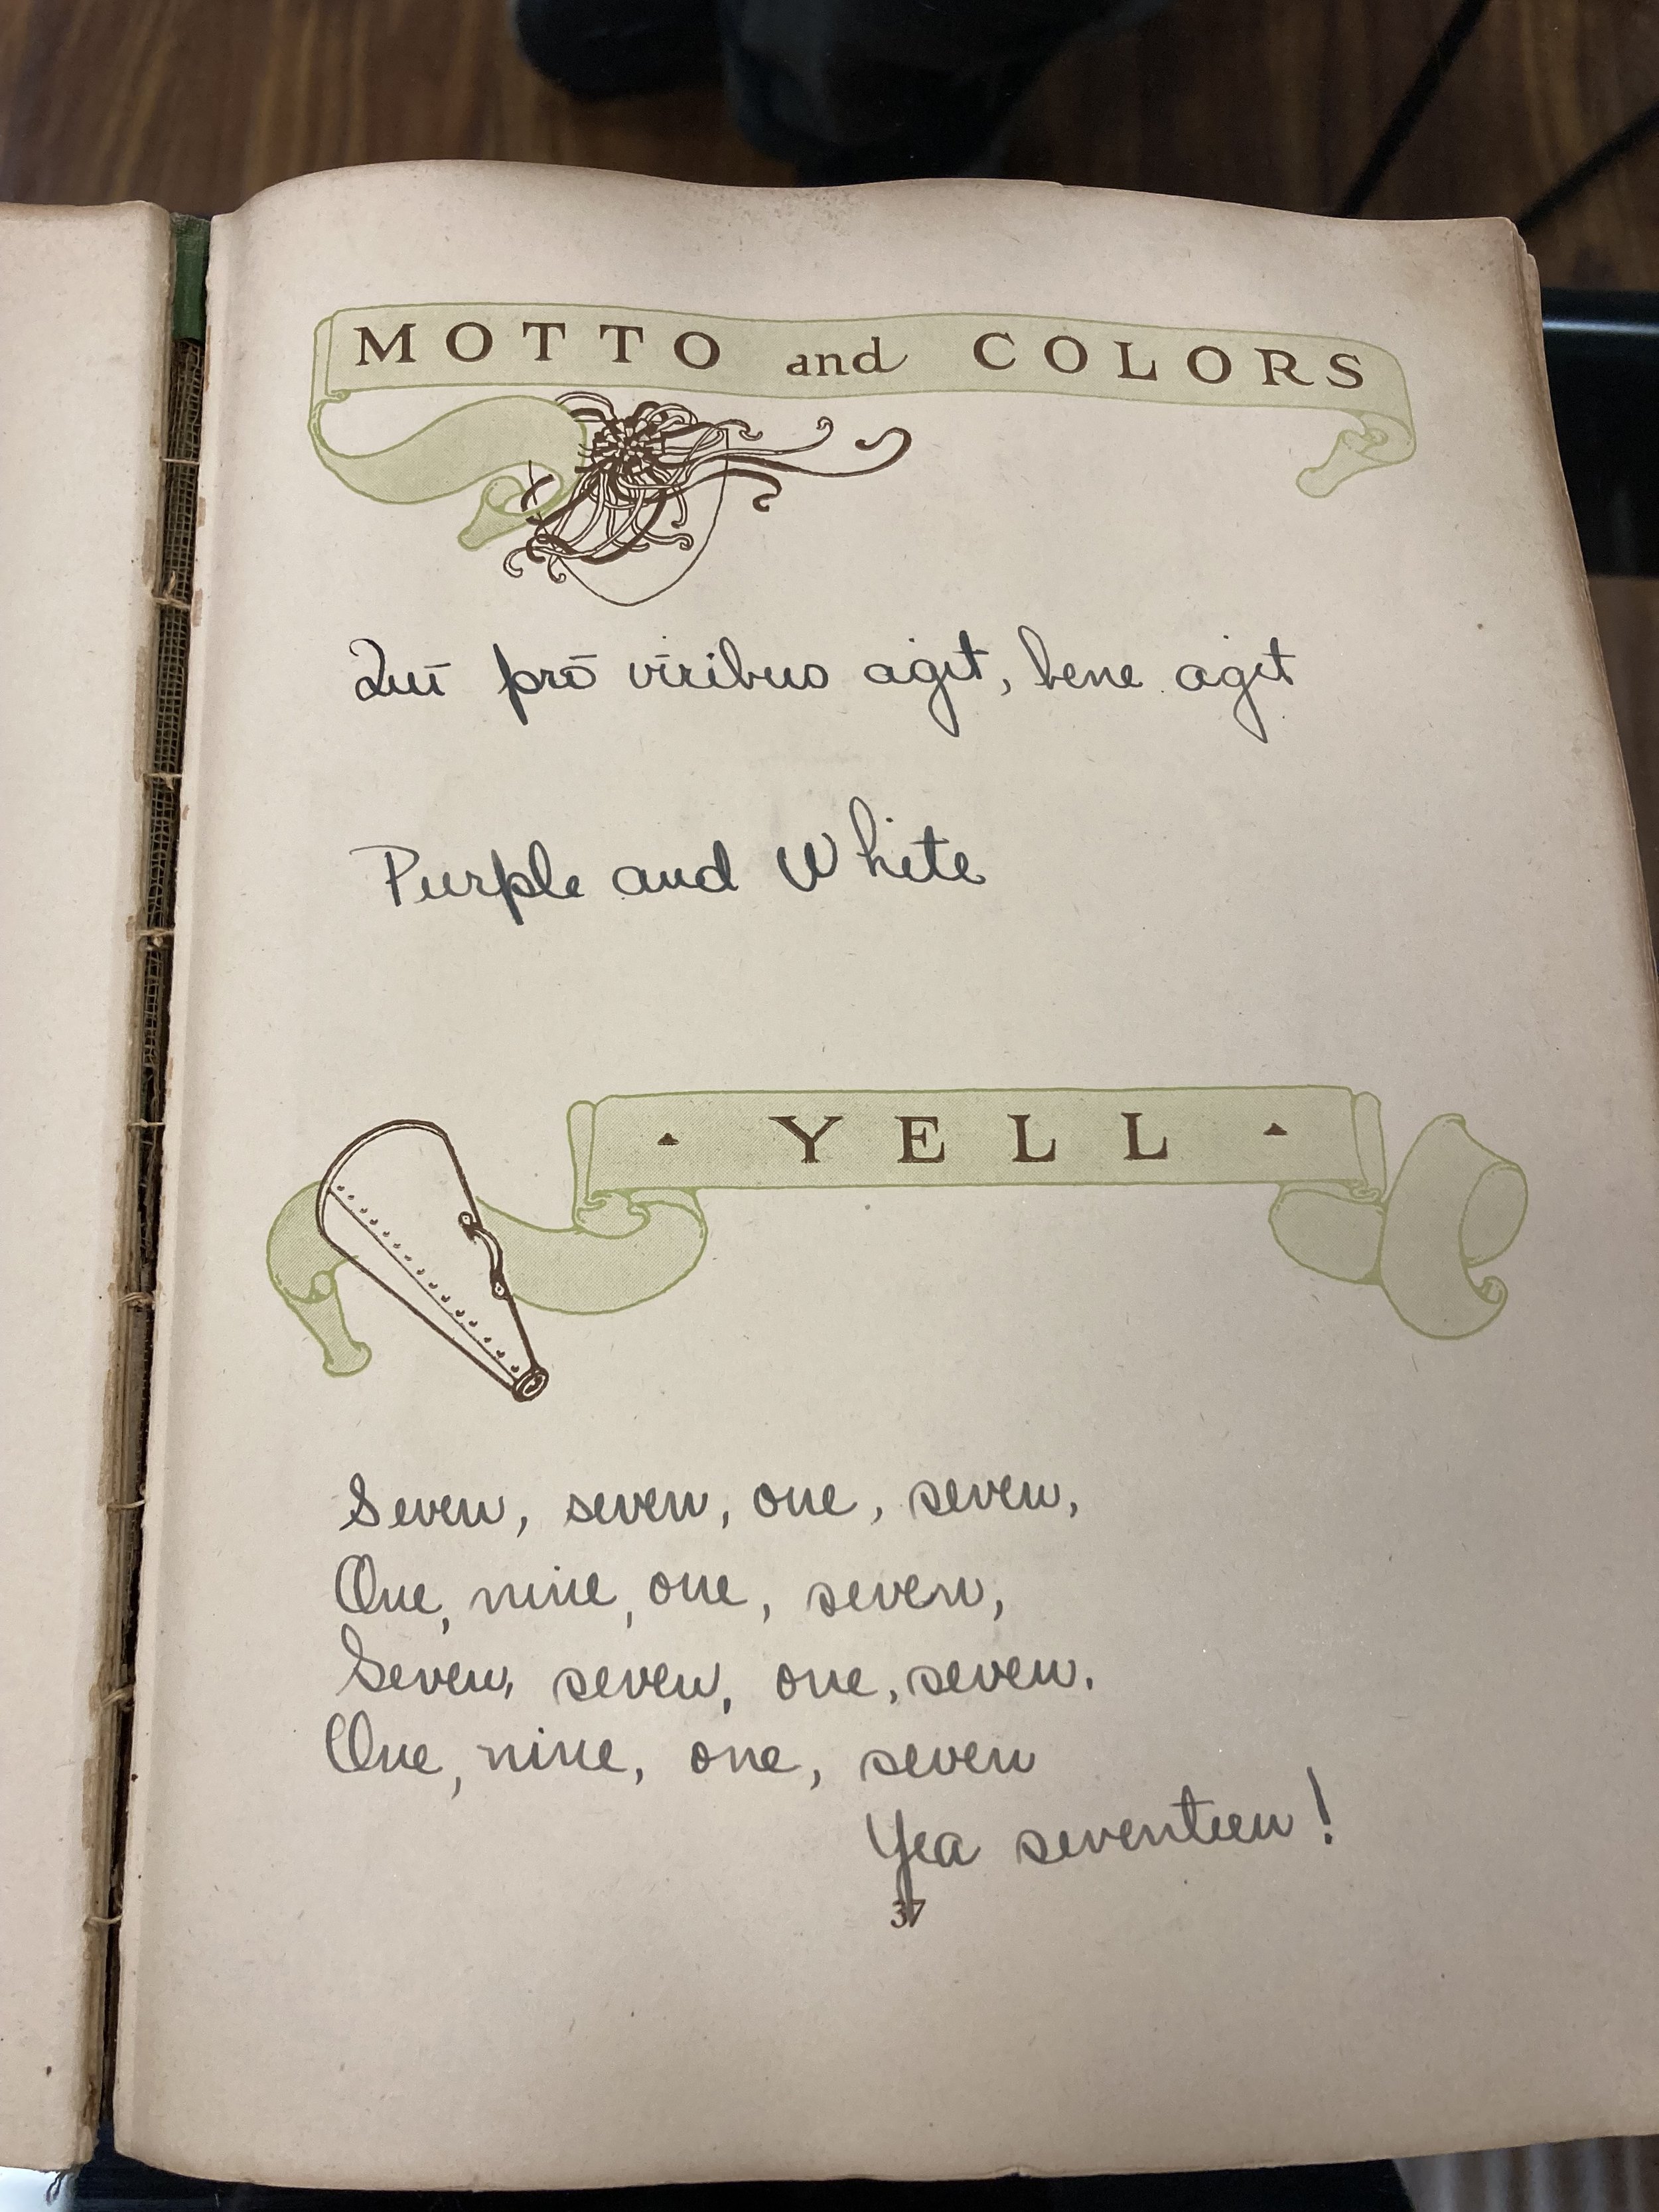 MOTTO and COLORS
Quī prō vīribus agit, bene agit
Purple and White
YELL
Seven, seven, one, seven,
One, nine, one, seven,
Seven, seven, one, seven.
One, nine, one, seven
Yea seventeen!
37